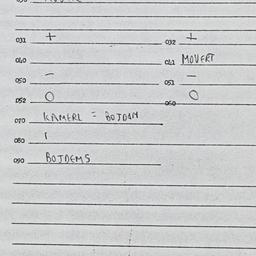 031 + 032 +
040 041 MOVERT
050 - 051 -
052 O 060 O
070 KAMERL = BOJDAN
080 1
090 BOJDEMS